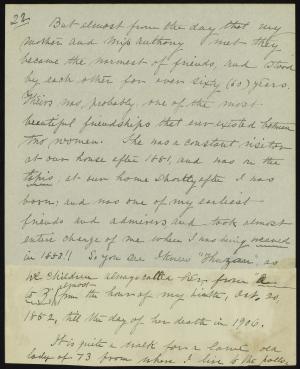 22
But almost from the day that my
mother and Miss Anthony met they
became the warmest of friends, and stood
by each other for over sixty (60) years.
Theirs was, probably, one of the most
beautiful friendships that ever existed between
two women. She was a constant visitor
at our house after 1851, and was in the
at our home shortly after I was
born, and was one of my earliest
friends and admirers and took almost
entire charge of me when I was being weaned
in 1853!! So you see I knew "Thuzan" as
we children always called her, from
almost
from the hour of my birth, Oct. 20,
1852, till the day of her death in 1906.
It is quite a walk for a lame old
lady of 73 from where I live to the